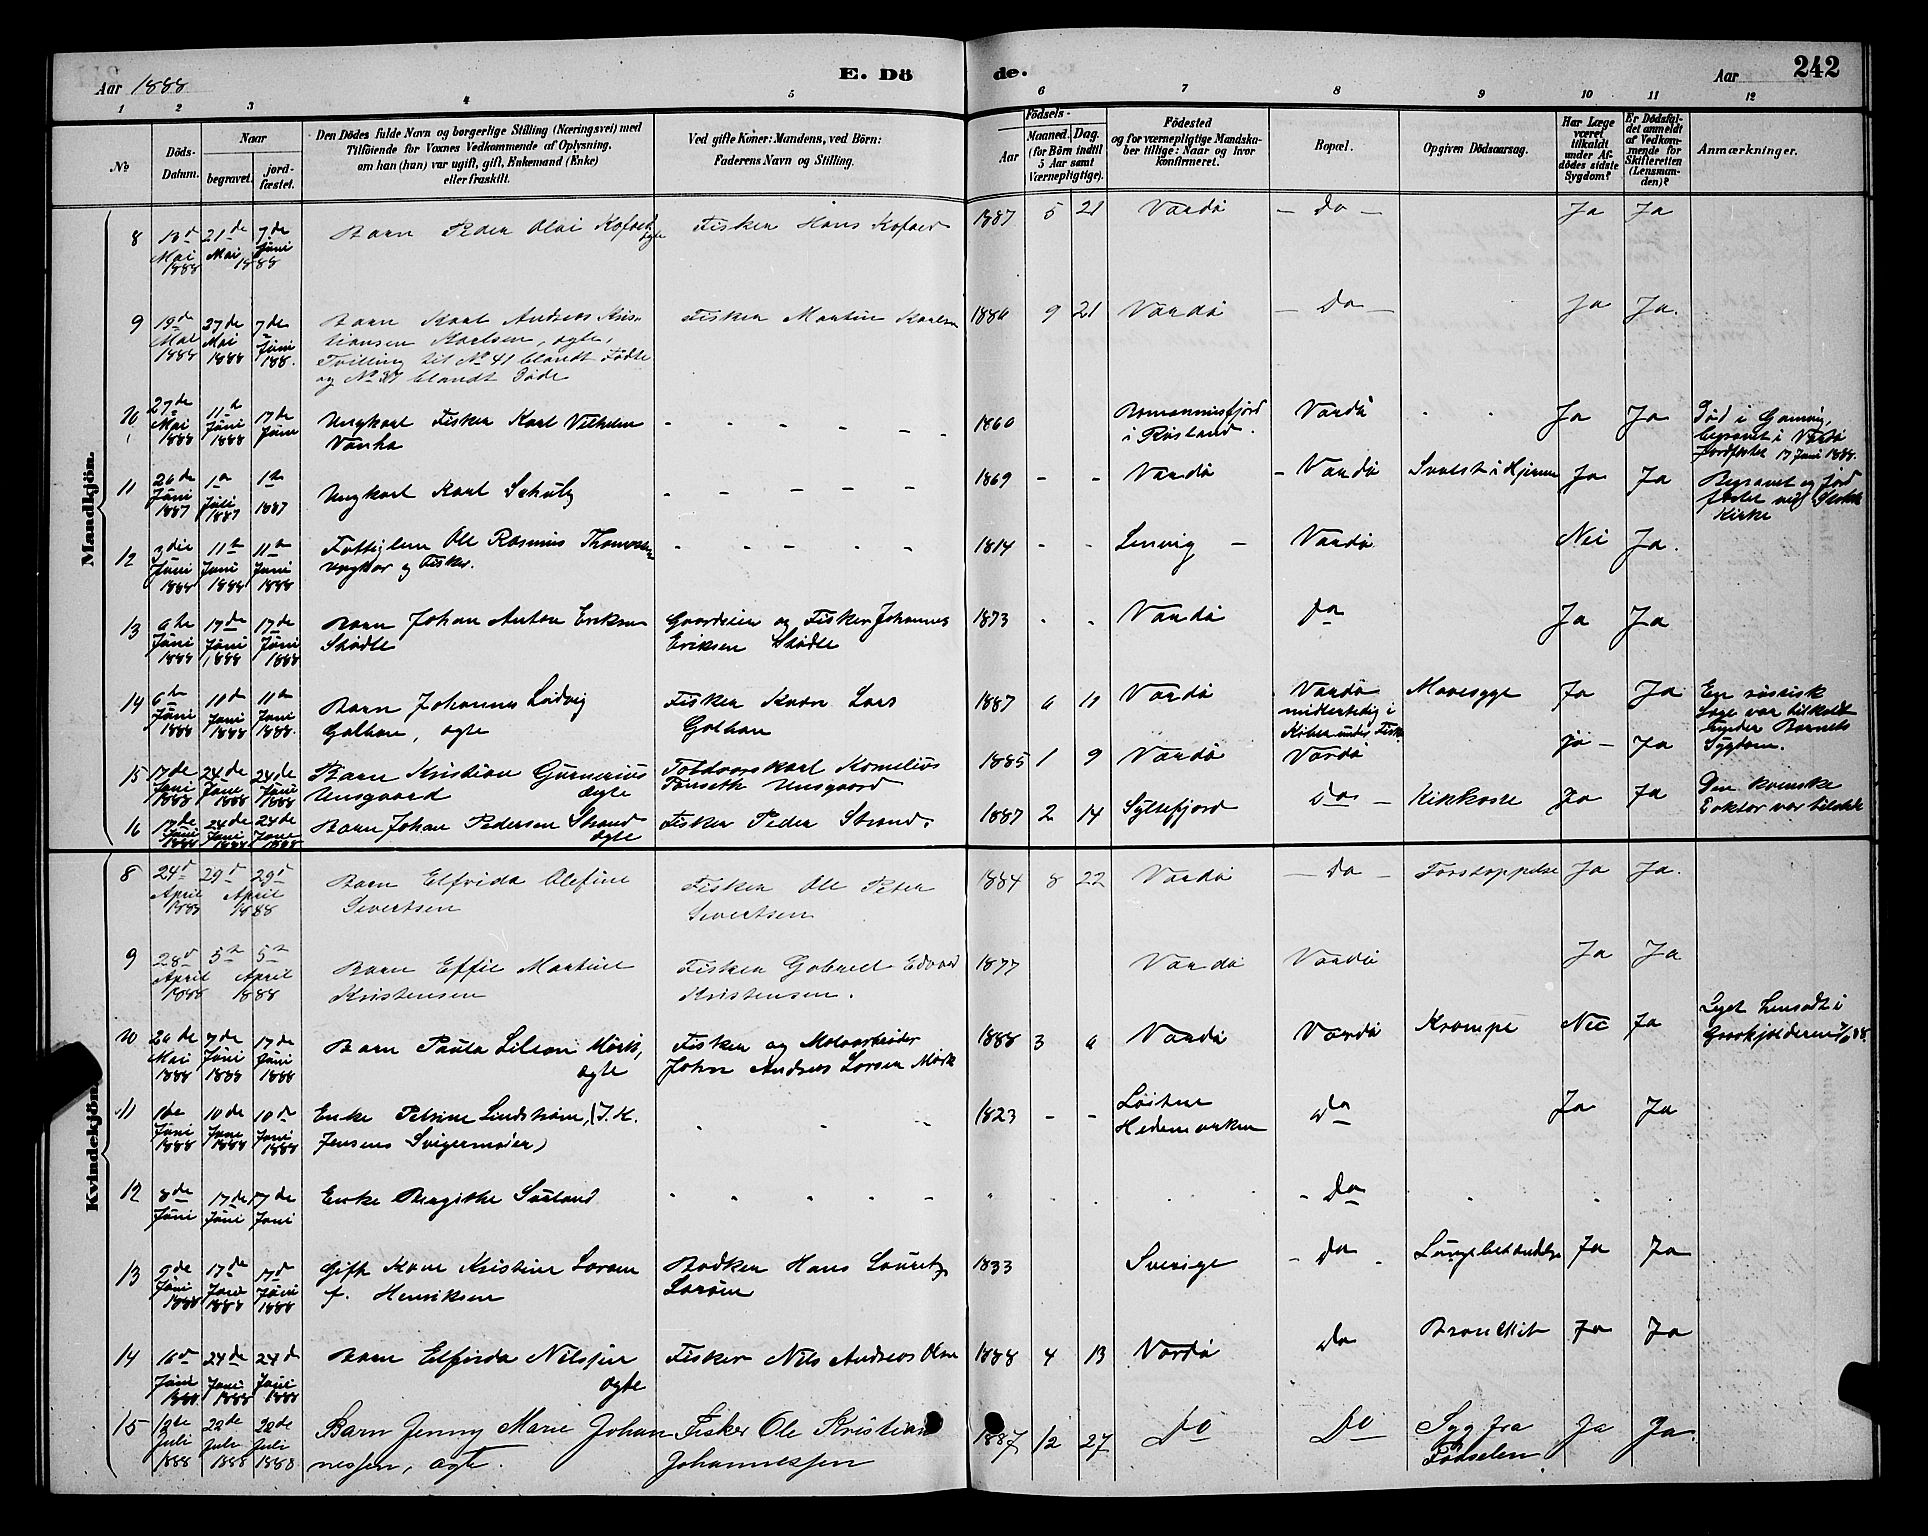 Aar 1888
E. Dö
de.
Aar
242
1 2 3 4 5 6 7 8 9 10 11 12
No
Döds-
Datum.
Naar
begravet.
jord-
fæstet.
Den Dödes fulde Navn og borgerlige Stilling (Næringsvei) med
Tilföiende for Voxnes Vedkommende af Oplysning,
om han (hun) var ugift, gift, Enkemand (Enke)
eller fraskilt.
Ved gifte Koner: Mandens, ved Börn:
Faderens Navn og Stilling.
Födsels-
Aar
Maaned. Dag.
(for Börn indtil
5 Aar samt
Værnepligtige).
Födested
og for værnepligtige Mandska-
ber tillige: Naar og hvor
konfirmeret.
Bopæl.
Opgiven Dödsaarsag.
Har Læge
været
tilkaldt
under Af-
dödes sidste
Sygdom?
Er Dödsfal-
det anmeldt
af Vedkom-
mende for
Skifteretten
(Lensman-
den)?
Anmærkninger.
Mandkjön.
8 13d Mai 1888 21de Mai 7de Juni 1888 Barn Peder Olai Kofoed ægte Fisker Hans Kofoed 1887 5 21 Vardö – Do – Ja Ja
9 19de Mai 1888 27de Mai 1888 7de Juni 188. Barn Karl Andreas Kris-
tiansen Karlsen, ægte,
Tvilling til No 41 blandt Födte
og No 37 blandt Döde
Fisker Martin Karlsen 1886 9 21 Vardö – Do – Ja Ja.
10 27de Mai 1888 11te Juni 1888 17de Juni Ungkarl Fisker Karl Vilhelm
Vanha
1860 i Rusland. Vardö Ja Ja Död i Gamvig,
begravet i Vardö
Jordfæstet 17 Juni 1888.
11 26de Juni 1887 1ste Juli 1887 1ste 1887 Ungkarl Karl Schulz 1869 - - Vardö – Vardö Svulst i Hjernen Ja Ja Begravet og jord
fæstet ved
Kirke
12 3die Juni 1888 11te Juni 1888 11te Juni 1888 Fattiglem Ole Rasmus Thomassen
ungkar og Fisker.
1814 - - Lenvig – Vardö Nei Ja.
13 6te Juni 1888 17de Juni 1888 17de Juni 1888 Barn Johan Anton Eriksen
Stödle
Gaardeier og Fisker Johannes
Eriksen Stödle
1873 Vardö Do Ja Ja
14 6te Juni 1888 11te Juni 1888 11te Juni 1888. Barn Johannes Ludvig
ægte
Fisker Lars
1887 6 11 Vardö Vardö
midlertidig i
Kiberg under Fisk.
Mavesyge Ja Ja En russisk
Læge var tilkaldt
under Barnets
Sygdom.
15 17de Juni 1888 24de Juni 1888 24de Juni 1888 Barn Kristian Gunerius
Unsgaard ægte
Toldvorskarl Kornelius
Fanseth Unsgaard
1885 1 9 Vardö Vardö ja – Ja
16 17de Juni 1888 24de Juni 1888 24de Juni 1888 Barn Johan Pedersen Strand
ægte
Fisker Peder Strand. 1887 2 14 Syltefjord Do – Kikhoste Ja Ja Den kvenske
Doktor var tilkaldt
Kvindekjön.
8 24d April 1888 29d 29d April 1888 Barn Elfrida Olefine
Sivertsen
Fisker Ole Peter
Sivertsen
1884 8 22 Vardö – Do – Forstoppelse Ja Ja.
9 28d April 1888 5te 5te April 1888 Barn Effie Martine
Kristensen
Fisker Gabriel Edvard
Kristensen.
1877 Vardö Vardö Ja Ja
10 26de Mai 1888 7de Juni 1888 17de Juni 1888 Barn Paula Lilian Mörk,
ægte
Fisker og Moloarbeider
John Andreas Larsen Mörk
1888 3 6 Vardö Vardö Krampe Nei Ja Liget hensadt i
Gravkjælderen 7/6 88.
11 1ste Juni 1888 10de Juni 1888 10de Juni 1888 Enke Petrine Lindström, (J. K.
Jensens Svigermoder)
1823 - - Löiten
Hedemarken
Do Ja Ja
12 8de Juni 17de Juni 17de Juni Enke Birgithe – Do
13 9de Juni 1888 17de Juni 1888 17d Juni 1888 Gift Kone Kristine Larsen
f. Henriksen
Bödker Hans Lauritz
Larsen
1833 Sverige – Do – Lungebetændelse Ja Ja
14 16d Juni 1888 24de Juni 1888 24d Juni 1888 Barn Elfrida Nilssen
ægte
Fisker Nils Andreas Olsen 1888 4 13 Vardö Do Bronchit Ja Ja
15 19de Juli 1888 22de Juli 1888 22de Juli 1888 Barn Jenny Marie Johan
nessen, ægte.
Fisker Ole Kristian
Johannessen
1887 12 27 Do Do Syg fra
Fødselen
Ja Ja.